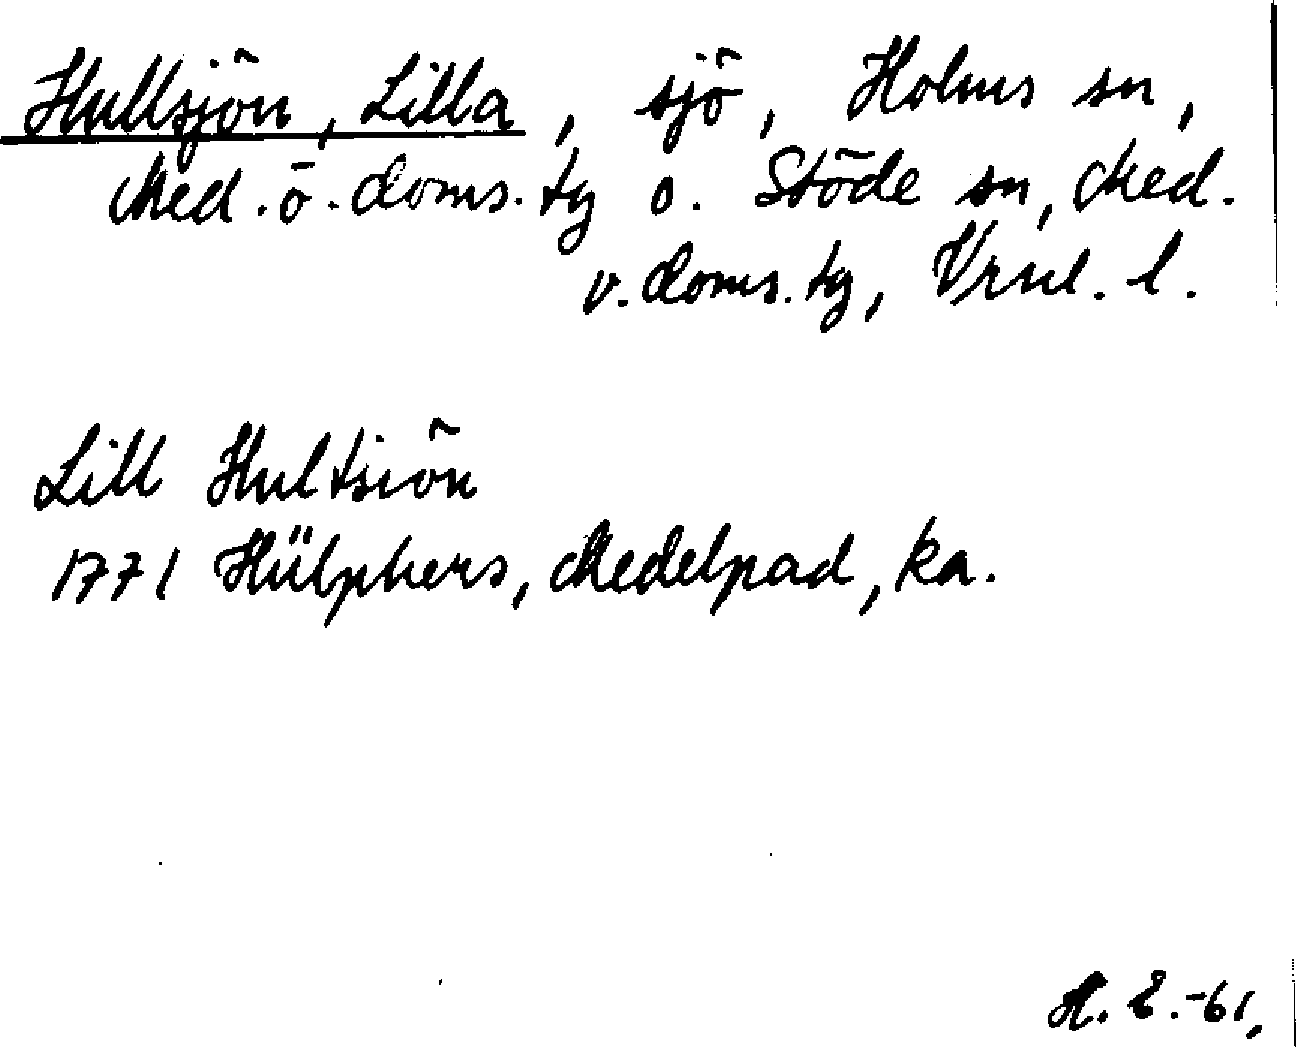 Hullsjön, Lilla, sjö, Holms sn,
Med. ö. doms. tg o. Stöde sn, Med.
v. doms. tg, Vrnl. l.
Lill Hultsiön
1771 Hülphers, Medelpad, ka.
H. E. -61.